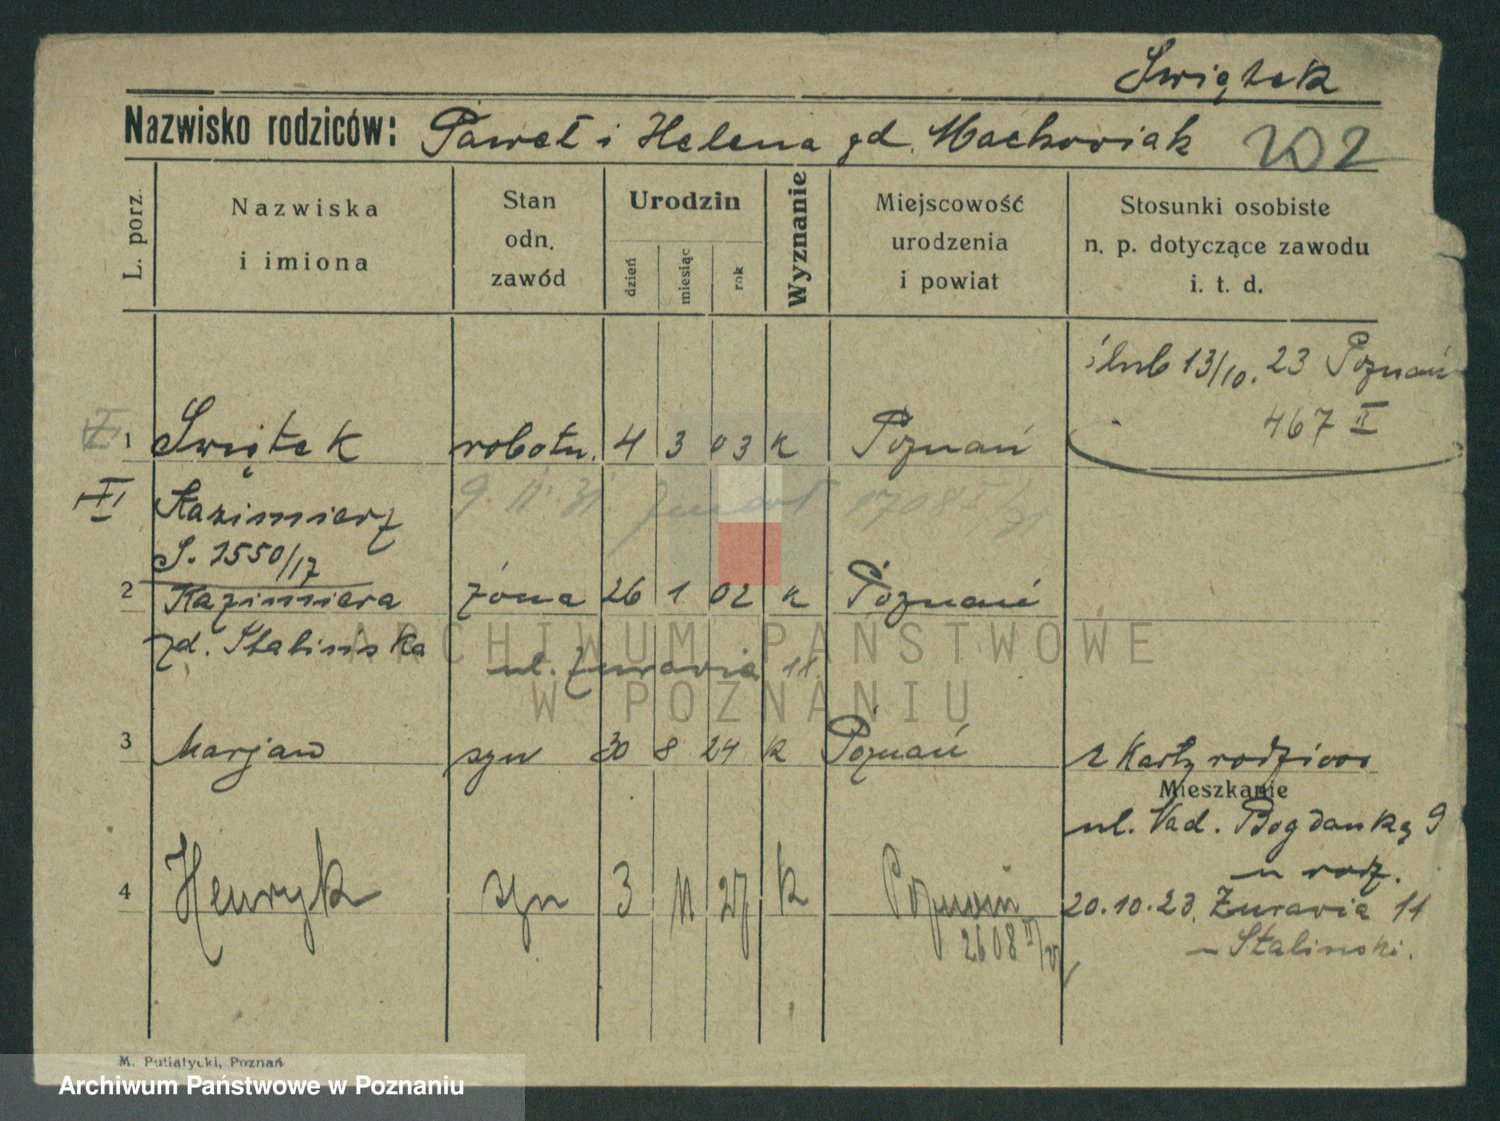 Swiątek
Nazwisko rodziców: Paweł i Helena zd. Maćkowiak 202
L. porz.
Nazwiska
i imiona
Stan
odn.
zawód
Urodzin
dzień
miesiąc
rok
Wyznanie
Miejscowość
urodzenia
i powiat
Stosunki osobiste
n. p. dotyczące zawodu
i. t. d.
ślub 13/10. 23 Poznań
467 II
1 Swiątek robotn. 4 3 03 k Poznań
II
Kazimierz 9. II. 31.
S. 1550/17
2 Kazimiera żona 26 1 02 k Poznań
zd. Stalinska
ul. Żurawia 11.
3 Marjan syn 30 8 24 k Poznań z Karty rodziców
Mieszkanie
ul. Nad. Bogdanką 9
u rodz.
4 Henryk syn 3 11 27 k Poznań
20.10.23. Żurawia 11
2608
u Stalinski.
M. Putiatycki, Poznań
ARCHIWUM PAŃSTWOWE
W POZNANIU
Archiwum Państwowe w Poznaniu